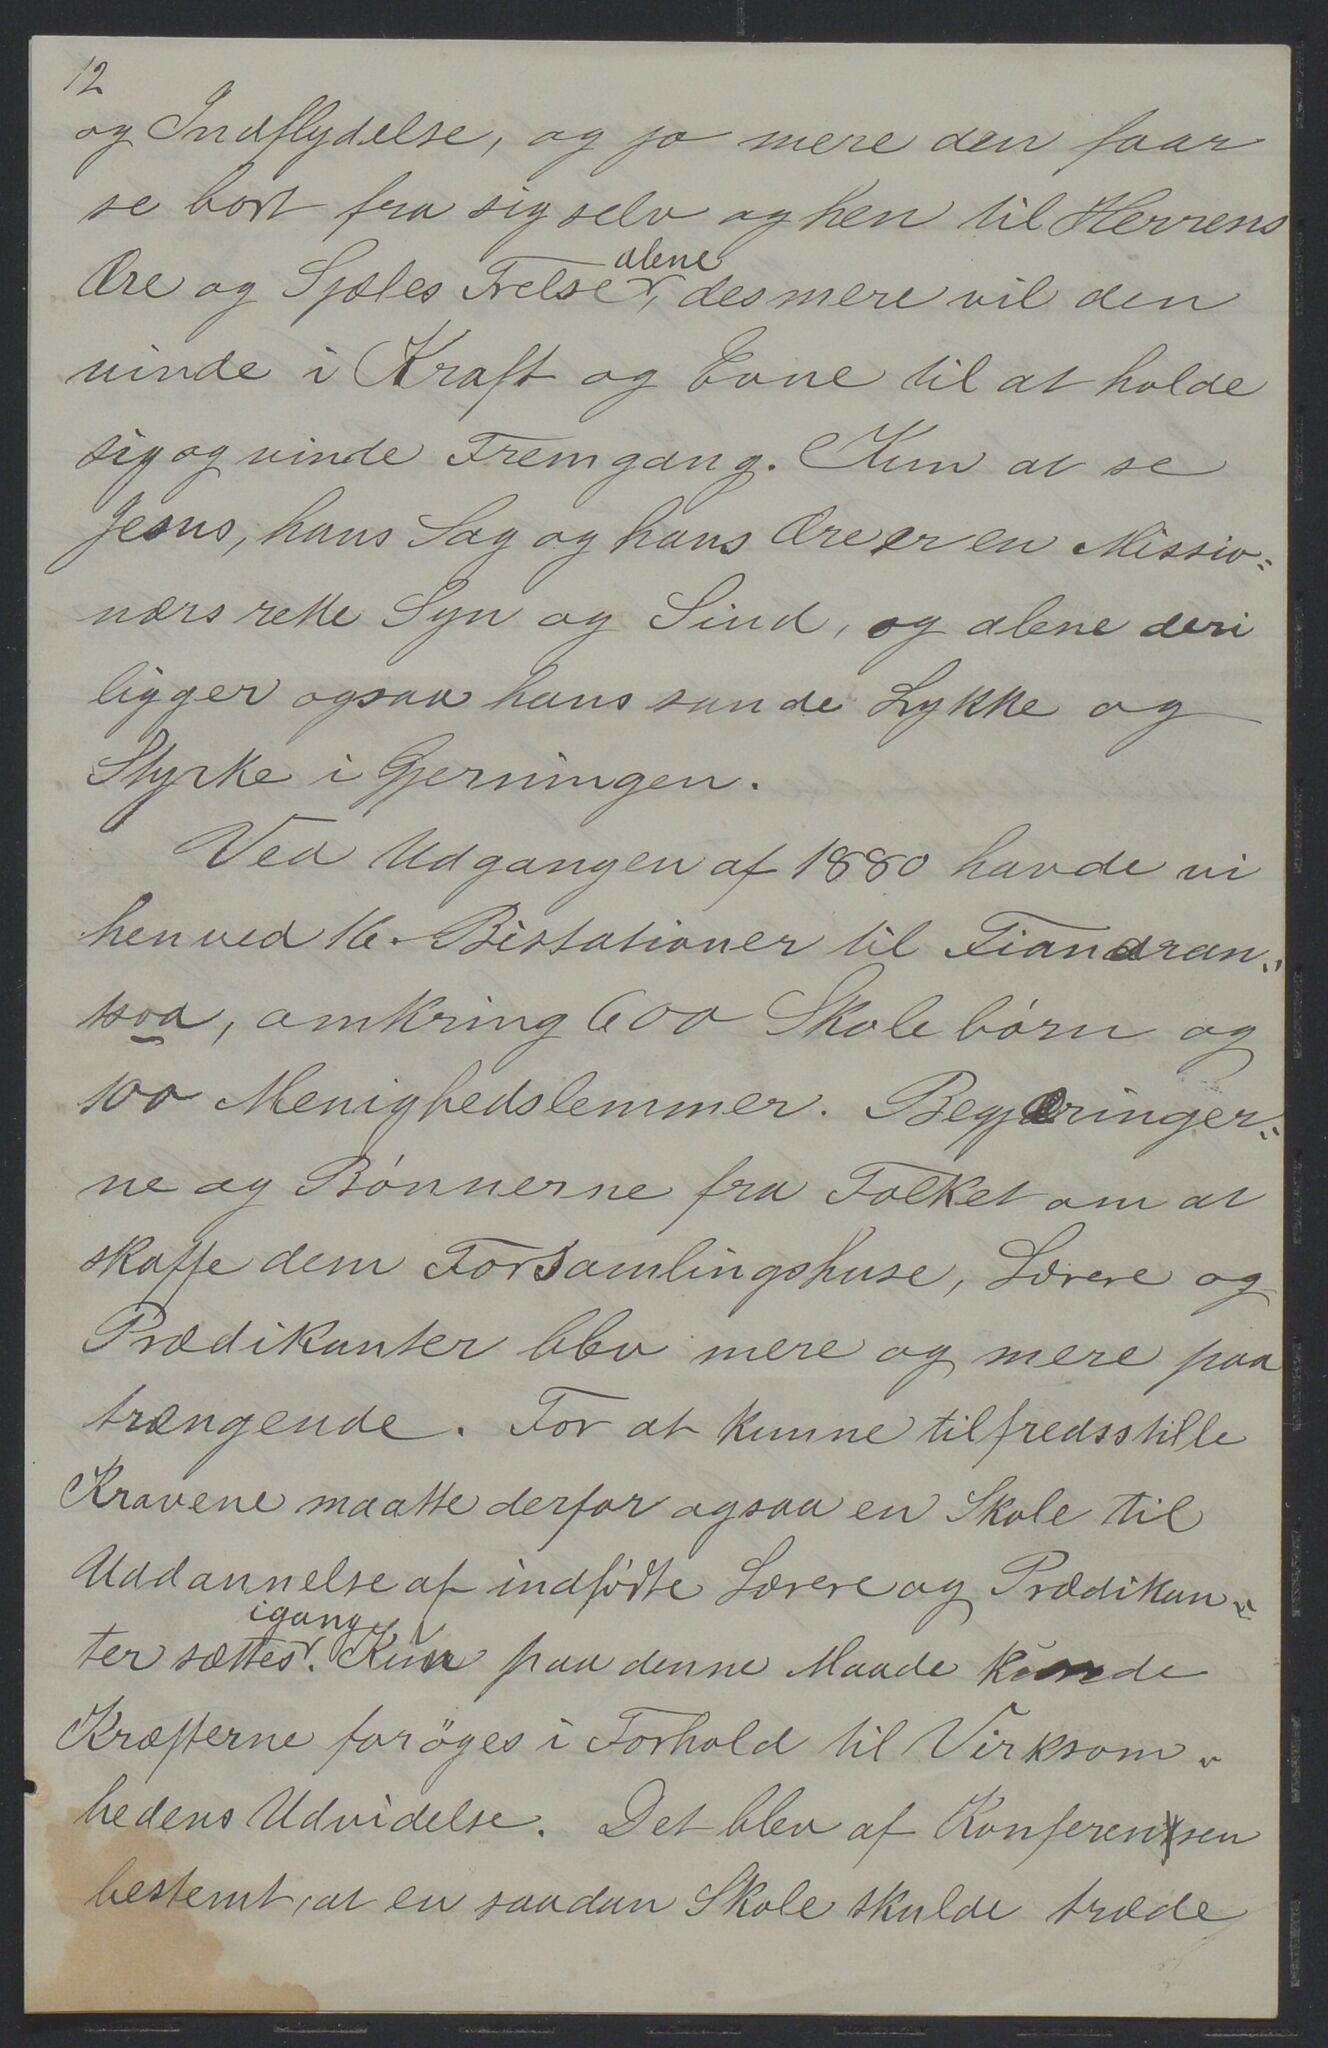 12
og Indflydelse, og jo mere den faar
se bort fra sig selv og hen til Herrens
Ære og Sjæles Frelse alene, des mere vil den
vinde i Kraft og Evne til at holde
sig og vinde Fremgang. Kun at se
Jesus, hans Sag og hans Ære er en Missio-
nærs rette Syn og Sind, og alene deri
ligger ogsaa hans sande Lykke og
Styrke i Gjerningen.
Ved Udgangen af 1880 havde vi
henved 16 Bistationer til Fianaran-
tsoa, omkring 600 Skolebørn og
100 Menighedslemmer. Begjæringer-
ne og Bønnerne fra Folket om at
skaffe dem Forsamlingshuse, Lærere og
Prædikanter blev mere og mere paa
trængende. For at kunne tilfredsstille
Kravene maatte derfor ogsaa en Skole til
Uddannelse af indfødte Lærere og Prædikan-
ter sættes igang. Kun paa denne Maade kunde
Kræfterne forøges i Forhold til Virksom-
hedens Udvidelse. Det blev af Konferensen
bestemt, at en saadan Skole skulde træde